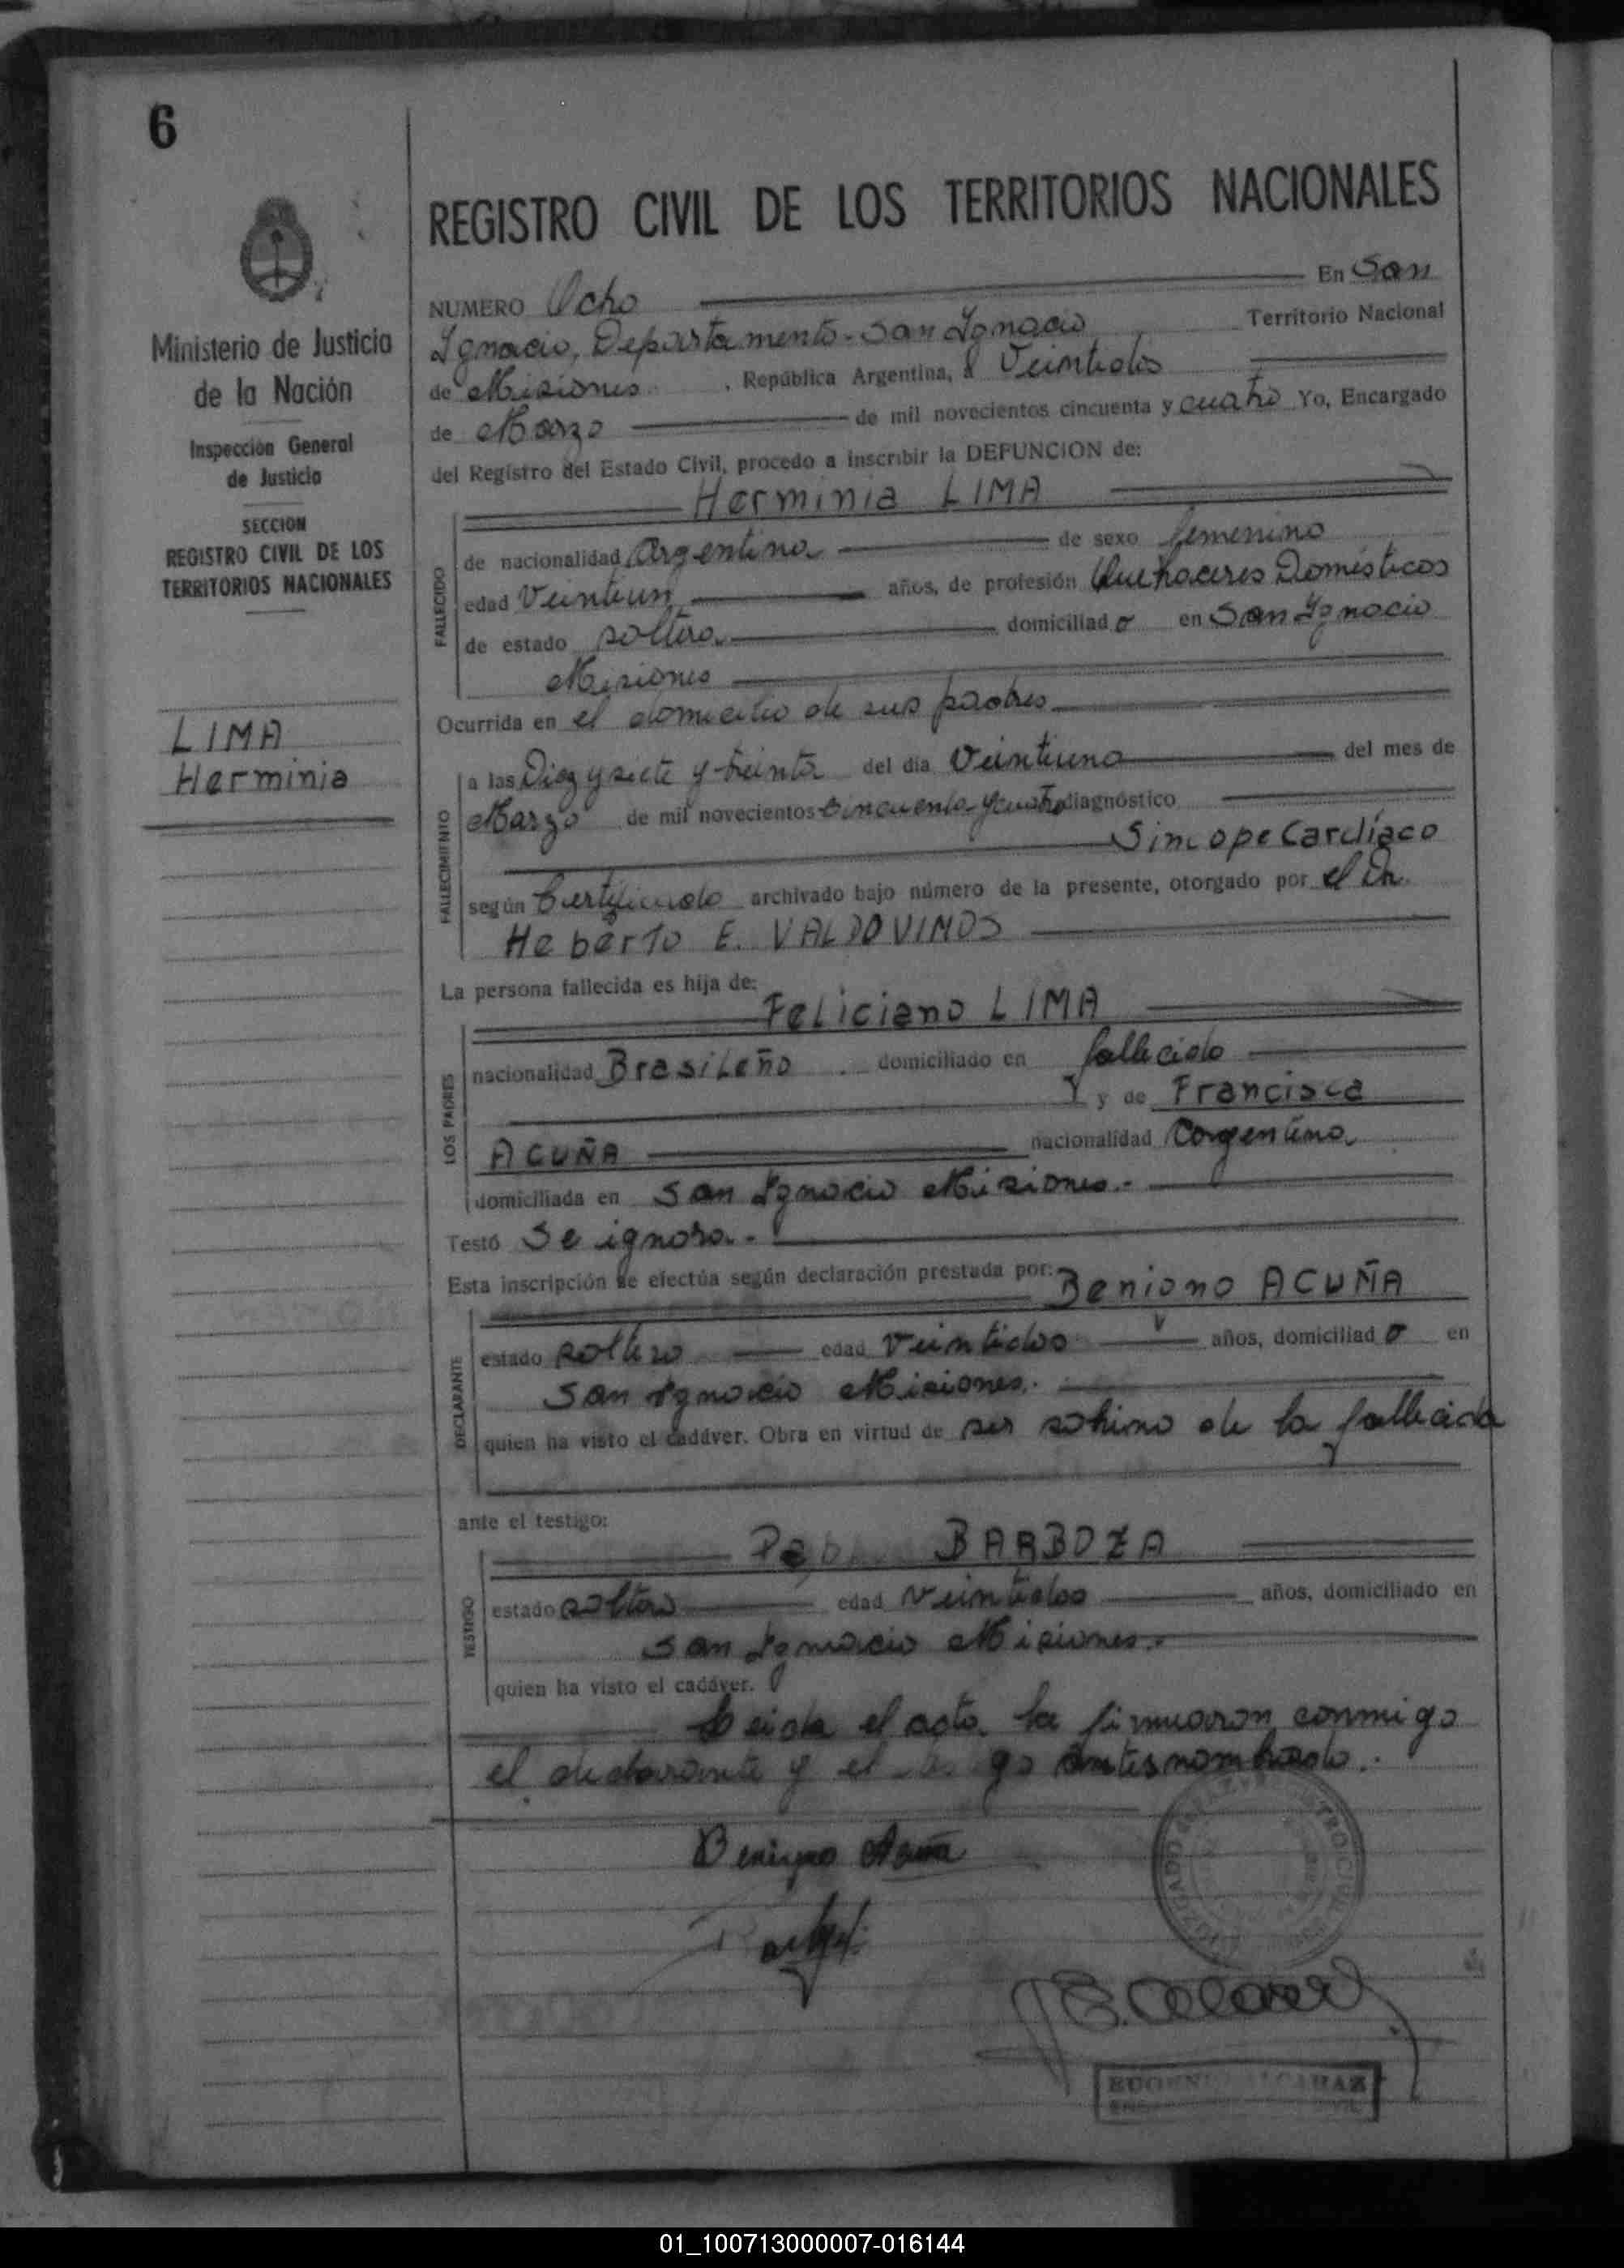 6
Ministerio de Justicia
de la Nación
Inspección General
de Justicia
SECCION
REGISTRO CIVIL DE LOS
TERRITORIOS NACIONALES
LIMA
Herminia
REGISTRO CIVIL DE LOS TERRITORIOS NACIONALES
NUMERO Ocho En San
Ignacio, Departamento San Ignacio Territorio Nacional
de Misiones, República Argentina, a Veintidos
de Marzo de mil novecientos cincuenta y cuatro Yo, Encargado
del Registro del Estado Civil, procedo a inscribir la DEFUNCION de:
Herminia LIMA
FALLECIDO
de nacionalidad Argentina de sexo femenino
edad Veintiun años, de profesión Quehaceres Domésticos
de estado soltera domiciliad a en San Ignacio
Misiones
Ocurrida en el domicilio de sus padres
FALLECIMIENTO
a las Diez y siete y treinta del día Veintiuno del mes de
Marzo de mil novecientos cincuenta y cuatro diagnóstico
Sincope Cardíaco
según Certificado archivado bajo número de la presente, otorgado por el Dr.
Heberto E. VALDOVINOS
La persona fallecida es hija de:
Feliciano LIMA
LOS PADRES
nacionalidad Brasileño domiciliado en fallecido
y de Francisca
ACUÑA nacionalidad Argentina
domiciliada en San Ignacio Misiones.-
Testó Se ignora.-
Esta inscripción se efectúa según declaración prestada por:
Benigno ACUÑA
DECLARANTE
estado soltero edad Veintidos años, domiciliad o en
San Ignacio Misiones.
quien ha visto el cadáver. Obra en virtud de ser sobrino de la fallecida
ante el testigo:
BARBOZA
TESTIGO
estado soltero edad Veintidos años, domiciliado en
San Ignacio Misiones.
quien ha visto el cadáver.
Leida el acta la firmaron conmigo
el declarante y el antes nombrado.
Benigno Acuña
EUGENIO ALCARAZ
01_100713000007-016144